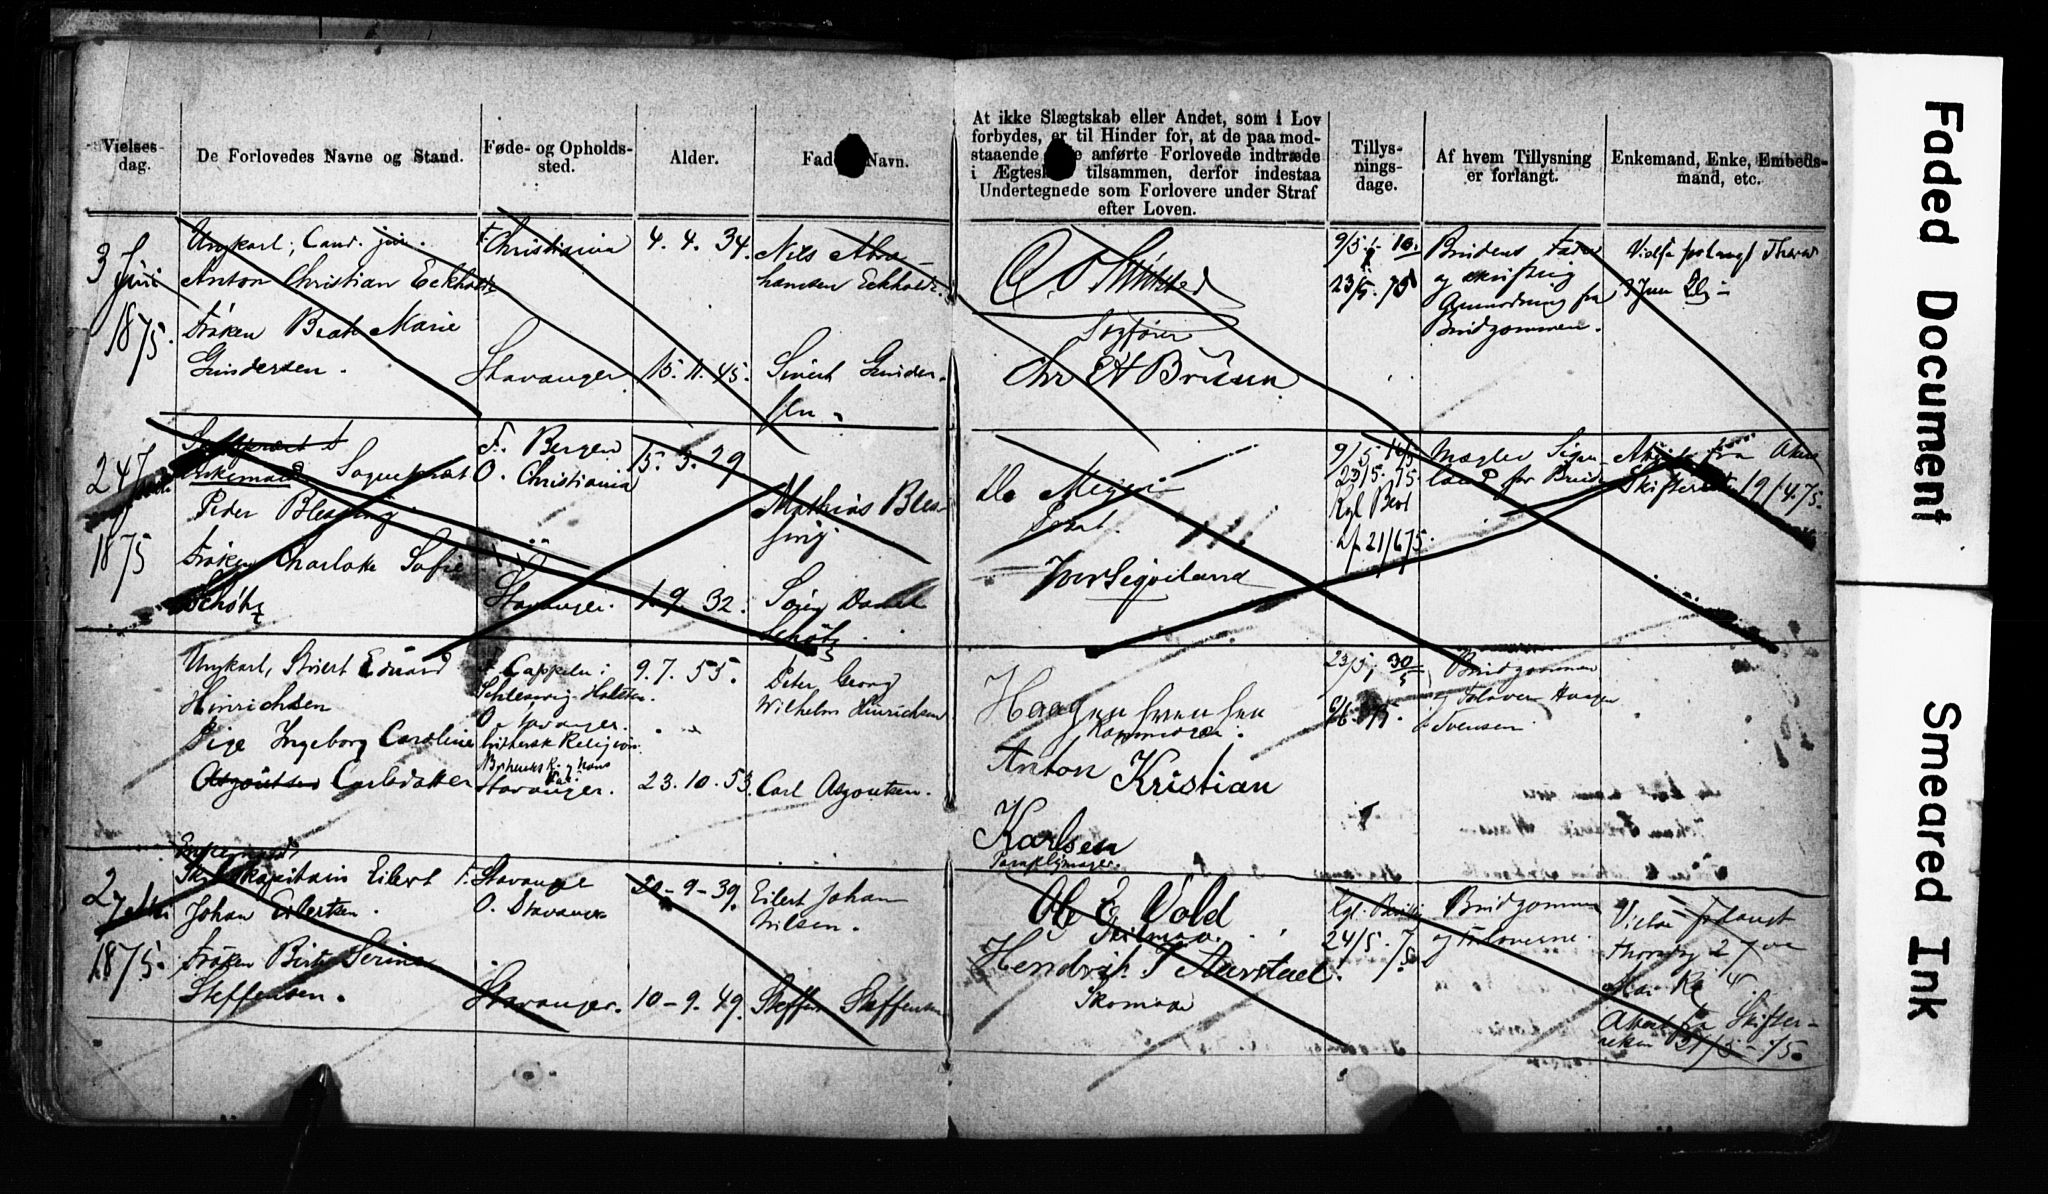 Vielses-
dag.
De Forlovedes Navne og Stand.
Føde- og Opholds-
sted.
Alder.
Navn.
At ikke Slægtskab eller Andet, som i Lov
forbydes, er til Hinder for, at de paa mod-
staaende anførte Forlovede indtræde
i tilsammen, derfor indestaa
Undertegnede som Forlovere under Straf
efter Loven.
Tillys-
nings-
dage.
Af hvem Tillysning
er forlangt.
Enkemand, Enke, Embeds-
mand, etc.
3 Juni
1875.
Ungkarl, Cand. jur.
Anton Christian Eckholdt
Frøken Beate Marie
Gundersen.
F. Christiania
Stavanger
4. 4. 34.
15. 11. 45.
Nils Abra-
hamsen Eckholdt.
Sivert Gunder-
sen
Sagfører
Chr
9/5
23/5. 75
Brudens Fader
og skriftlig
Anmodning fra
Brudgommen.
3 Juni
24
1875
Enkemand Sogneprest
Peder Blessing
Frøken Charlotte Sofie
Schøtz
F. Bergen
O. Christiania
Stavanger.
15. 3. 29
1. 9. 32.
Mathias Bles-
sing.
Søren Daniel
Schøtz.
9/5 16/5
23/5. 75.
Kgl Bevl
21/6 75.
Mægler Sigve-
land for Brud
Attest fra Akers
Skifteret 19/4. 75.
Iver Sigveland
Ungkarl, Sivert Eduard
Hinrichsen
Pige Ingeborg Caroline
Asgoutsen Carlsdatter
F. Cappeln
Schleswig-Holsten
O. Stavanger.
Luthersk Religion.
Stavanger.
9. 7. 55.
23. 10. 53.
Peter Georg
Wilhelm Hinrichsen
Carl Asgoutsen.
Haagen Svensen
Anton Kristian
Karlsen
23/5, 30/5
6/6. 75.
Brudgommen
og Forlover Haagen
Svensen
2
1875.
Enkemand
Skibskapitain Eilert
Johan Eilertsen.
Frøken Birte Serine
Steffensen.
F. Stavanger
O. Stavanger
Stavanger.
20-9-39.
10-9-49.
Eilert Johan
Nilsen.
Steffen Steffensen
Ole E Vold
Seilmager.
Hendrik T Aarstad.
Skomager
Kgl. Bevilling
24/5. 75
Brudgommen
og Forloverne.
Vielse forlangt
Thorsdag 2 June
Attest fra Skifte-
retten 21/5 - 75.
Faded Document
Smeared Ink